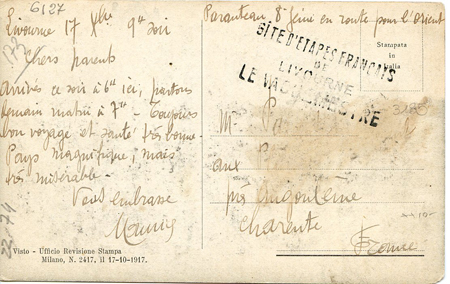 6127
173
Livourne 17 Xbre 9h soir
Chers parents
arrivés ce soir à 6h ici, partons
demain matin à 7h - Toujours
bon voyage et santé très bonne.
Pays magnifique, mais
très misérable.
Vous embrasse
Maurice
Visto - Ufficio Revisione Stampa
Milano, N. 2417, il 17-10-1917.
en route pour l'Orient
GITE D'ETAPES FRANÇAIS
DE
LIVOURNE
LE VAGUEMESTRE
Stampata
in
Italia
Mr
aux
près Angoulême
Charente
France